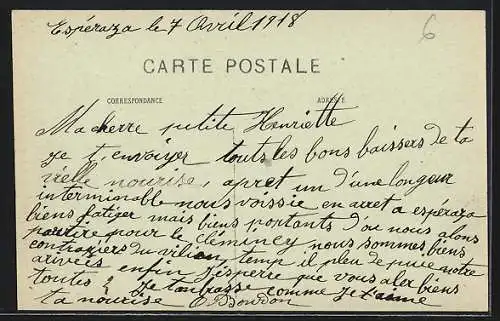 Espéraza le 7 Avril 1918
6
CARTE POSTALE
CORRESPONDANCE
ADRESSE
Ma cherre petite Henriette
Je t'envoyer touts les bons baissers de ta
vielle nourise, apret un d'une longeur
interminable nous voissie en arret a espéraza
biens fatiger mais biens portants d'ou nous alons
partire pour le nous sommes biens
contragiers du vilien temp il pleu de puie notre
arriveés enfin J'esperre que vous aler biens
toutes Je t'anbrasse comme je t'aime
ta nourise Boudon